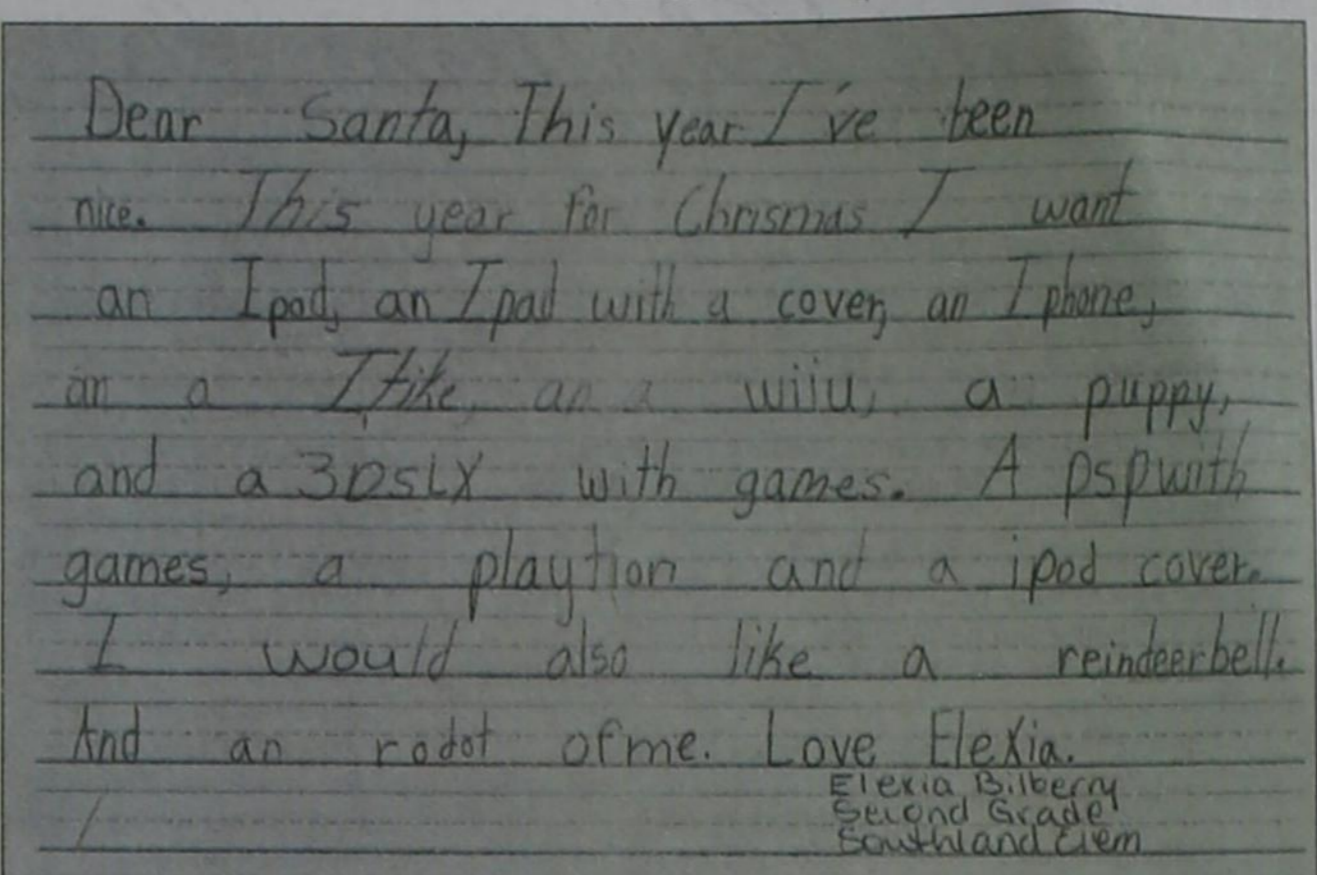 Dear Santa, This year I've been
nice. This year for Chrismas I want
an Ipod, an Ipad with a cover, an Iphone,
an a an a wiiu, a puppy,
and a 3DSLX with games. A pspwith
games, a playtion and a ipod cover.
I would also like a reindeerbell.
And an rodot ofme. Love Elexia.
Elexia Bilberry
Second Grade
Southland Elem